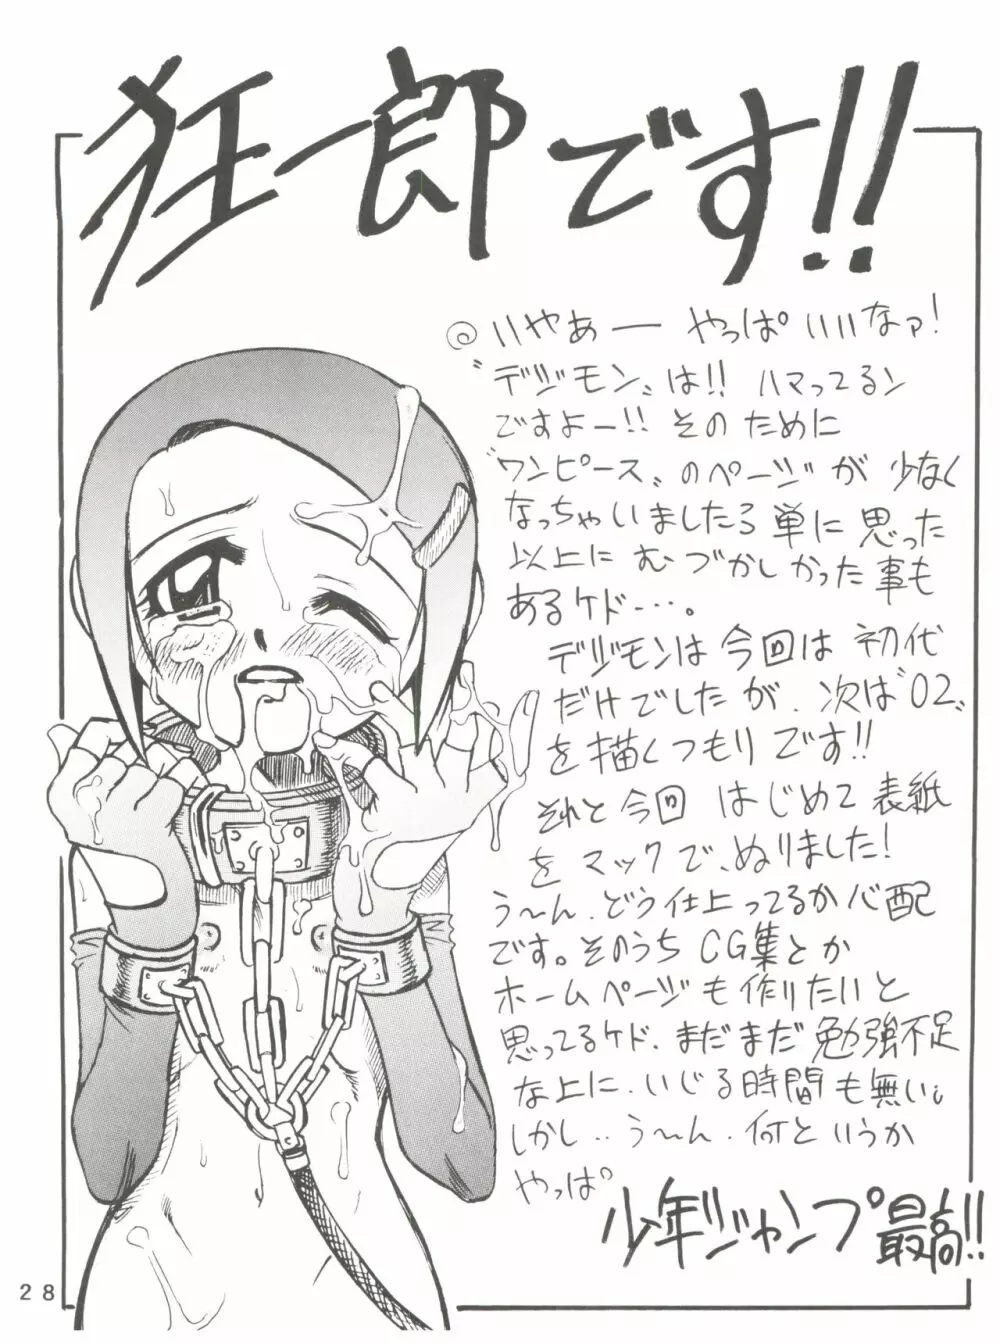 狂一郎です!!
◎いやあー やっぱいいなァ!
“デジモン„は!! ハマってるン
ですよー!! そのために
“ワンピース„のページが少なく
なっちゃいましたろ 単に思った
以上にむづかしかった事も
あるケド…。
デジモンは今回は初代
だけでしたが、次は“02„
を描くつもりです!!
それと今回はじめて表紙
をマックで、ぬりました!
う〜ん、どう仕上ってるか心配
です。そのうちCG集とか
ホームページも作りたいと
思ってるケド、まだまだ勉強不足
な上に、いじる時間も無い。
しかし‥う〜ん、何というか
やっぱ
少年ジャンプ最高!!
28